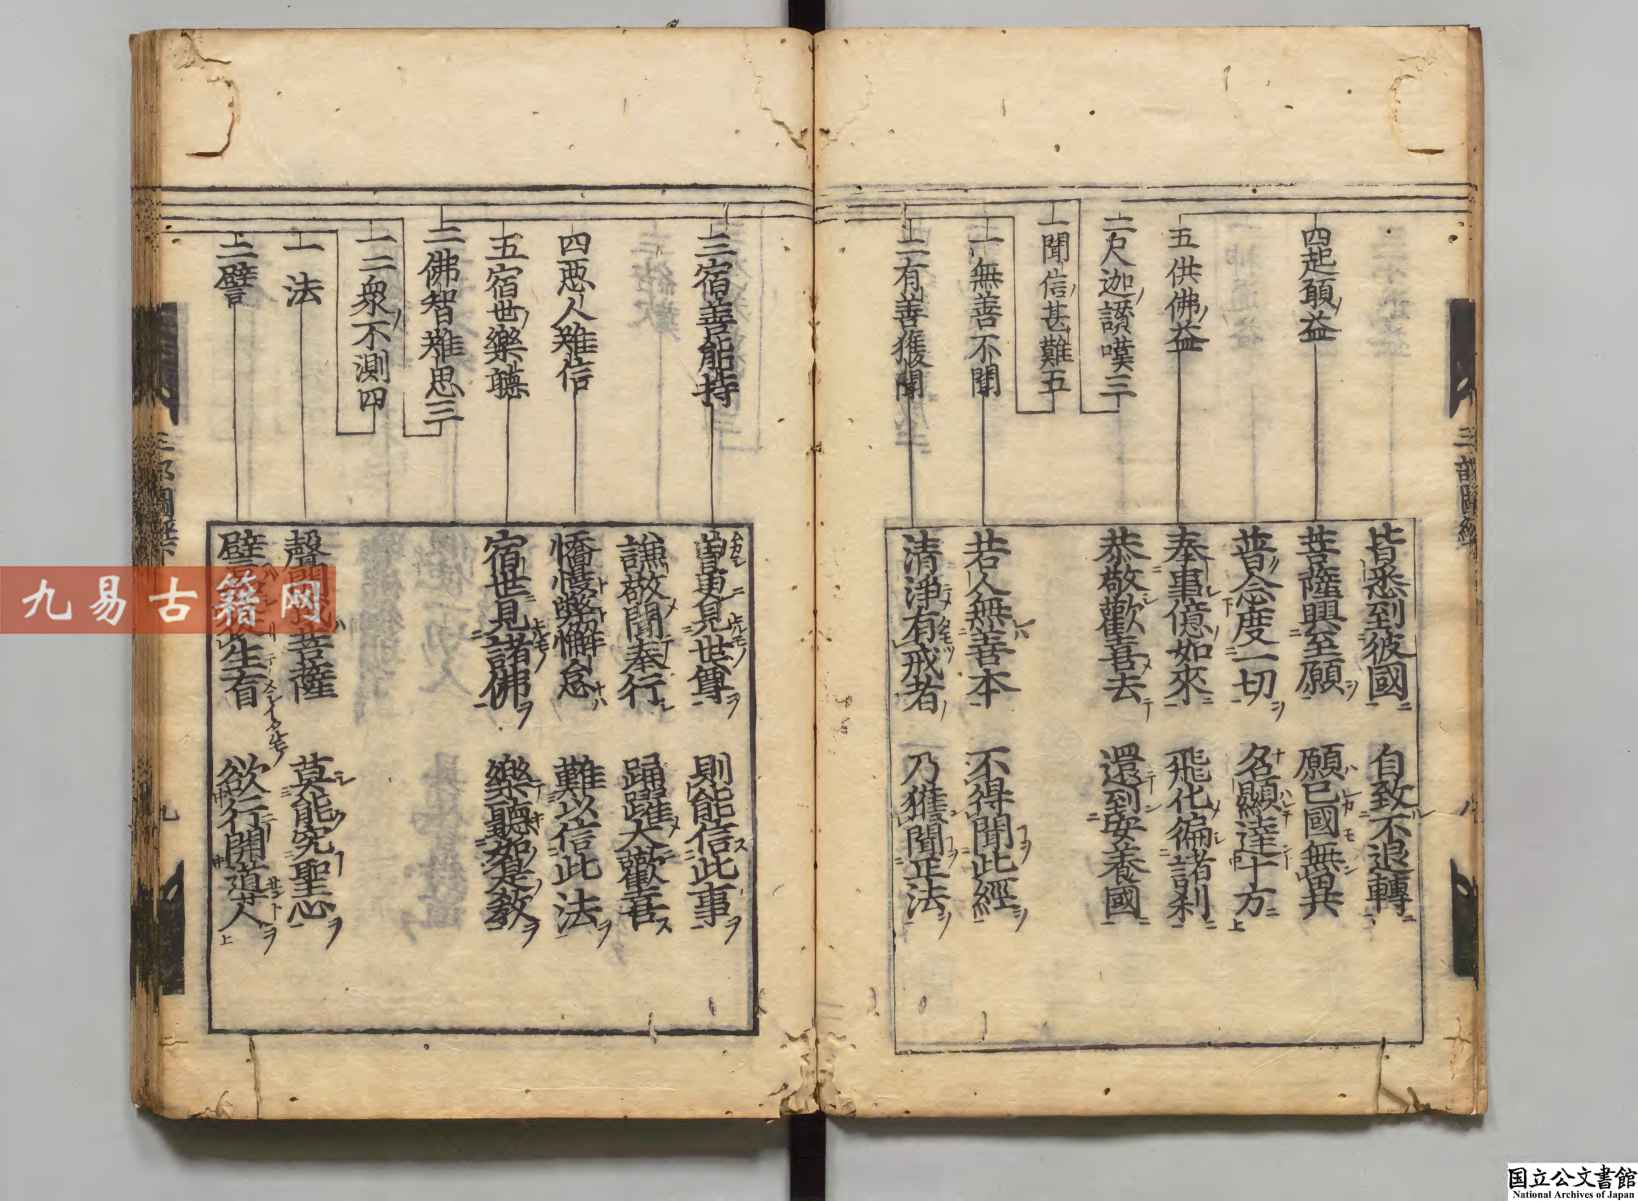 四起願益
五供佛益
二尺迦讃嘆三
一聞信甚難五
一無善不聞
二有善獲聞
皆悉到彼國　自致不退轉
菩薩興至願　願已國無異
普念度一切　名顯達十方
奉事億如來　飛化徧諸刹
恭敬歡喜去　還到安養國
若人無善本　不得聞此經
清淨有戒者　乃獲聞正法
三宿善能持
四惡人難信
五宿世樂聽
二佛智難思三
一二衆不測四
一法
二譬
曽更見世尊　則能信此事
謙敬聞奉行　踊躍大歡喜
憍慢弊懈怠　難以信此法
宿世見諸佛　樂聽如是教
聲聞或菩薩　莫能究聖心
譬　生盲　欲行開導人
九易古籍网
国立公文書館
National Archives of Japan